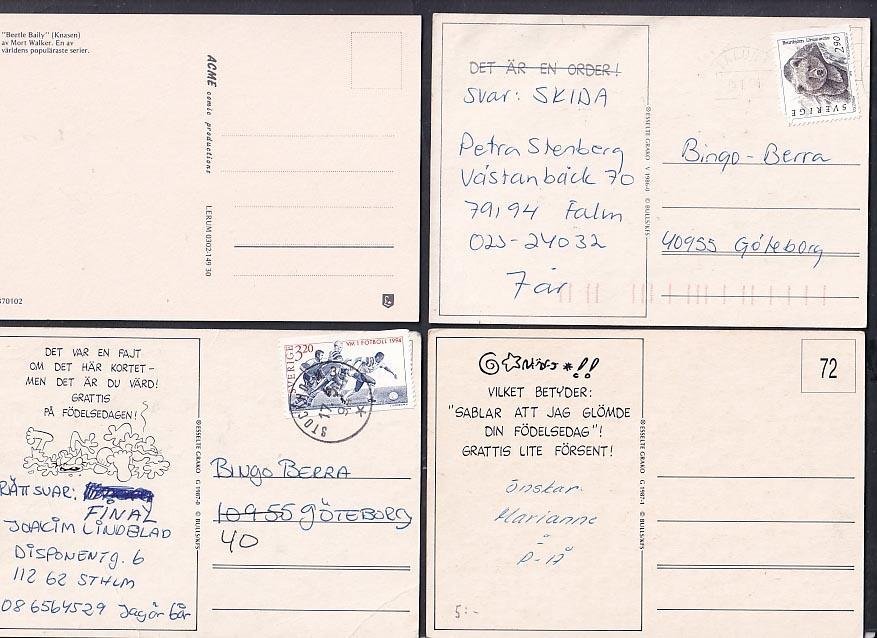 "Beetle Baily" (Knasen)
av Mort Walker. En av
världens populäraste serier.
ACME comic productions
LERUM 0302-149 30
370102
DET ÄR EN ORDER!
Svar: SKIDA
Petra Stenberg
Västanbäck 70
79194 Falun
023-24032
7 år
© ESSELTE GRAKO V 1986-0 © BULLS/KFS
SVERIGE
2.90
Bingo-Berra
40955 Göteborg
DET VAR EN FAJT
OM DET HÄR KORTET-
MEN DET ÄR DU VÄRD!
GRATTIS
PÅ FÖDELSEDAGEN!
RÄTT SVAR:
FINAL
JOAKIM LINDBLAD
DISPONENTG. 6
112 62 STHLM
08 6564529 Jag är 6år
© ESSELTE GRAKO G 1987-1 © BULLS/KFS
SVERIGE
3.20
VM I FOTBOLL 1994
STOCKHOLM
BINGO BERRA
10955 GÖTEBORG
40
VILKET BETYDER:
"SABLAR ATT JAG GLÖMDE
DIN FÖDELSEDAG"!
GRATTIS LITE FÖRSENT!
önskar
Marianne
5:-
© ESSELTE GRAKO G 1987-1 © BULLS/KFS
72